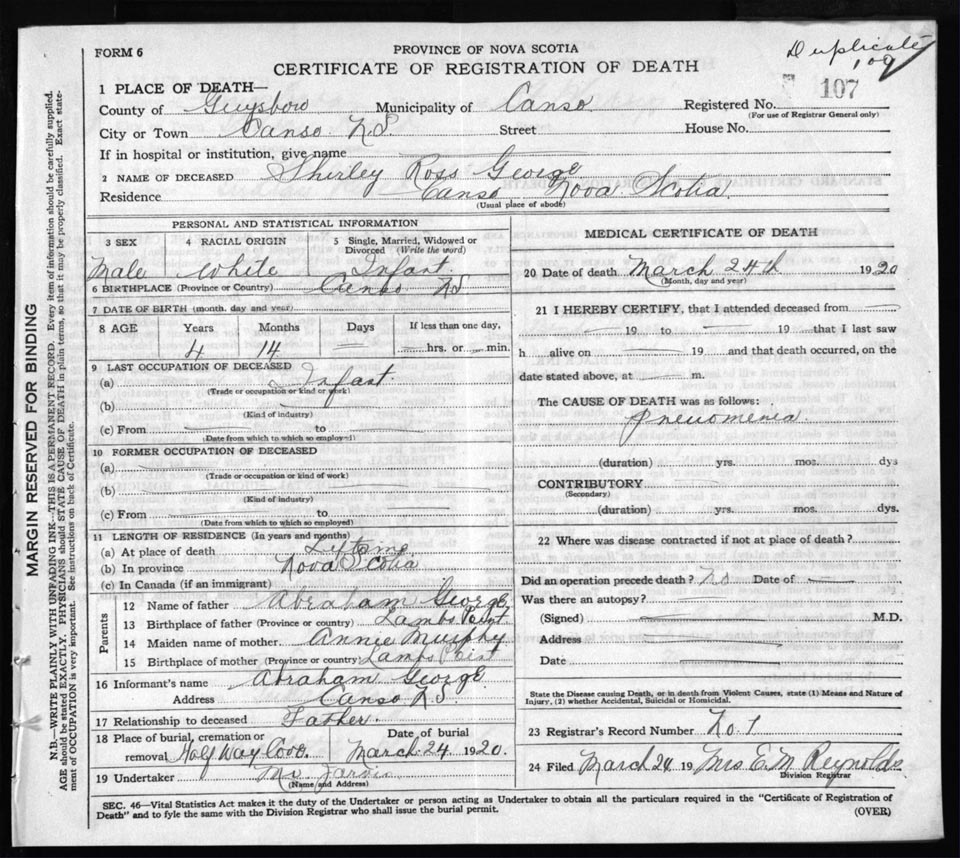 Duplicate
109
FORM 6
PROVINCE OF NOVA SCOTIA
CERTIFICATE OF REGISTRATION OF DEATH
107
1 PLACE OF DEATH—
County of Guysboro Municipality of Canso Registered No.
(For use of Registrar General only)
City or Town Canso N.S. Street House No.
If in hospital or institution, give name
2 NAME OF DECEASED Shirley Ross George
Residence Canso Nova Scotia
(Usual place of abode)
PERSONAL AND STATISTICAL INFORMATION
3 SEX 4 RACIAL ORIGIN 5 Single, Married, Widowed or Divorced (Write the word)
Male White Infant
6 BIRTHPLACE (Province or Country) Canso NS
7 DATE OF BIRTH (month, day and year)
8 AGE Years Months Days If less than one day,
4 14 — hrs. or min.
9 LAST OCCUPATION OF DECEASED
(a) Infant.
(Trade or occupation or kind of work)
(b)
(Kind of industry)
(c) From to
(Date from which to which so employed)
10 FORMER OCCUPATION OF DECEASED
(a)
(Trade or occupation or kind of work)
(b)
(Kind of industry)
(c) From to
(Date from which to which so employed)
11 LENGTH OF RESIDENCE (In years and months)
(a) At place of death Liftime
(b) In province Nova Scotia
(c) In Canada (if an immigrant)
Parents
12 Name of father Abraham George
13 Birthplace of father (Province or country) Lambs Point
14 Maiden name of mother Annie Murphy
15 Birthplace of mother (Province or country) Lamps Point
16 Informant's name Abraham George
Address Canso N.S.
17 Relationship to deceased Father.
18 Place of burial, cremation or removal Half Way Cove. Date of burial March 24 1920.
19 Undertaker Mr Jarvis
(Name and Address)
MEDICAL CERTIFICATE OF DEATH
20 Date of death March 24th 1920
(Month, day and year)
21 I HEREBY CERTIFY, that I attended deceased from
19 to 19 that I last saw
h alive on 19 and that death occurred, on the
date stated above, at m.
The CAUSE OF DEATH was as follows:
Pneuomenia
(duration) yrs. mos. dys
CONTRIBUTORY
(Secondary)
(duration) yrs. mos. dys.
22 Where was disease contracted if not at place of death?
Did an operation precede death? No Date of
Was there an autopsy?
(Signed) M.D.
Address
Date
State the Disease causing Death, or in death from Violent Causes, state (1) Means and Nature of
Injury, (2) whether Accidental, Suicidal or Homicidal.
23 Registrar's Record Number No. 1
24 Filed March 24 19 Mrs E. M Reynolds
Division Registrar
SEC. 46—Vital Statistics Act makes it the duty of the Undertaker or person acting as Undertaker to obtain all the particulars required in the "Certificate of Registration of
Death" and to fyle the same with the Division Registrar who shall issue the burial permit.
(OVER)
MARGIN RESERVED FOR BINDING
N.B.—WRITE PLAINLY WITH UNFADING INK—THIS IS A PERMANENT RECORD. Every item of information should be carefully supplied.
AGE should be stated EXACTLY. PHYSICIANS should STATE CAUSE OF DEATH in plain terms, so that it may be properly classified. Exact state-
ment of OCCUPATION is very important. See instructions on back of Certificate.